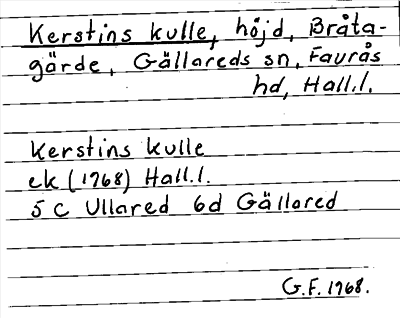 Kerstins kulle, höjd, Bråta-
gärde, Gällareds sn, Faurås
hd, Hall.l.
Kerstins kulle
ek (1968) Hall.l.
5 C Ullared 6d Gällared
G.F. 1968.